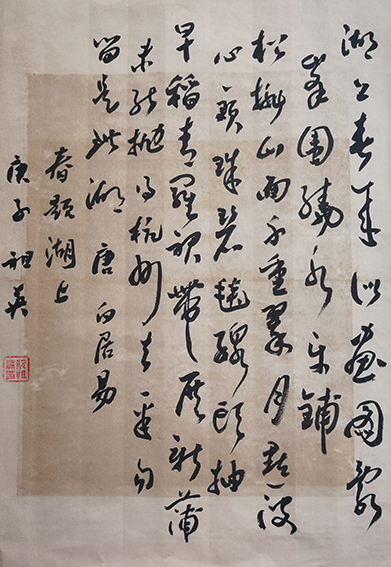 湖上春来似画图乱
峯围绕水平铺
松排山面千重翠月点波
心一颗珠碧毯線頭抽
早稻青羅裙帶展新蒲
未能抛得杭州去一半勾
留是此湖 唐 白居易
春题湖上
庚子 祖英